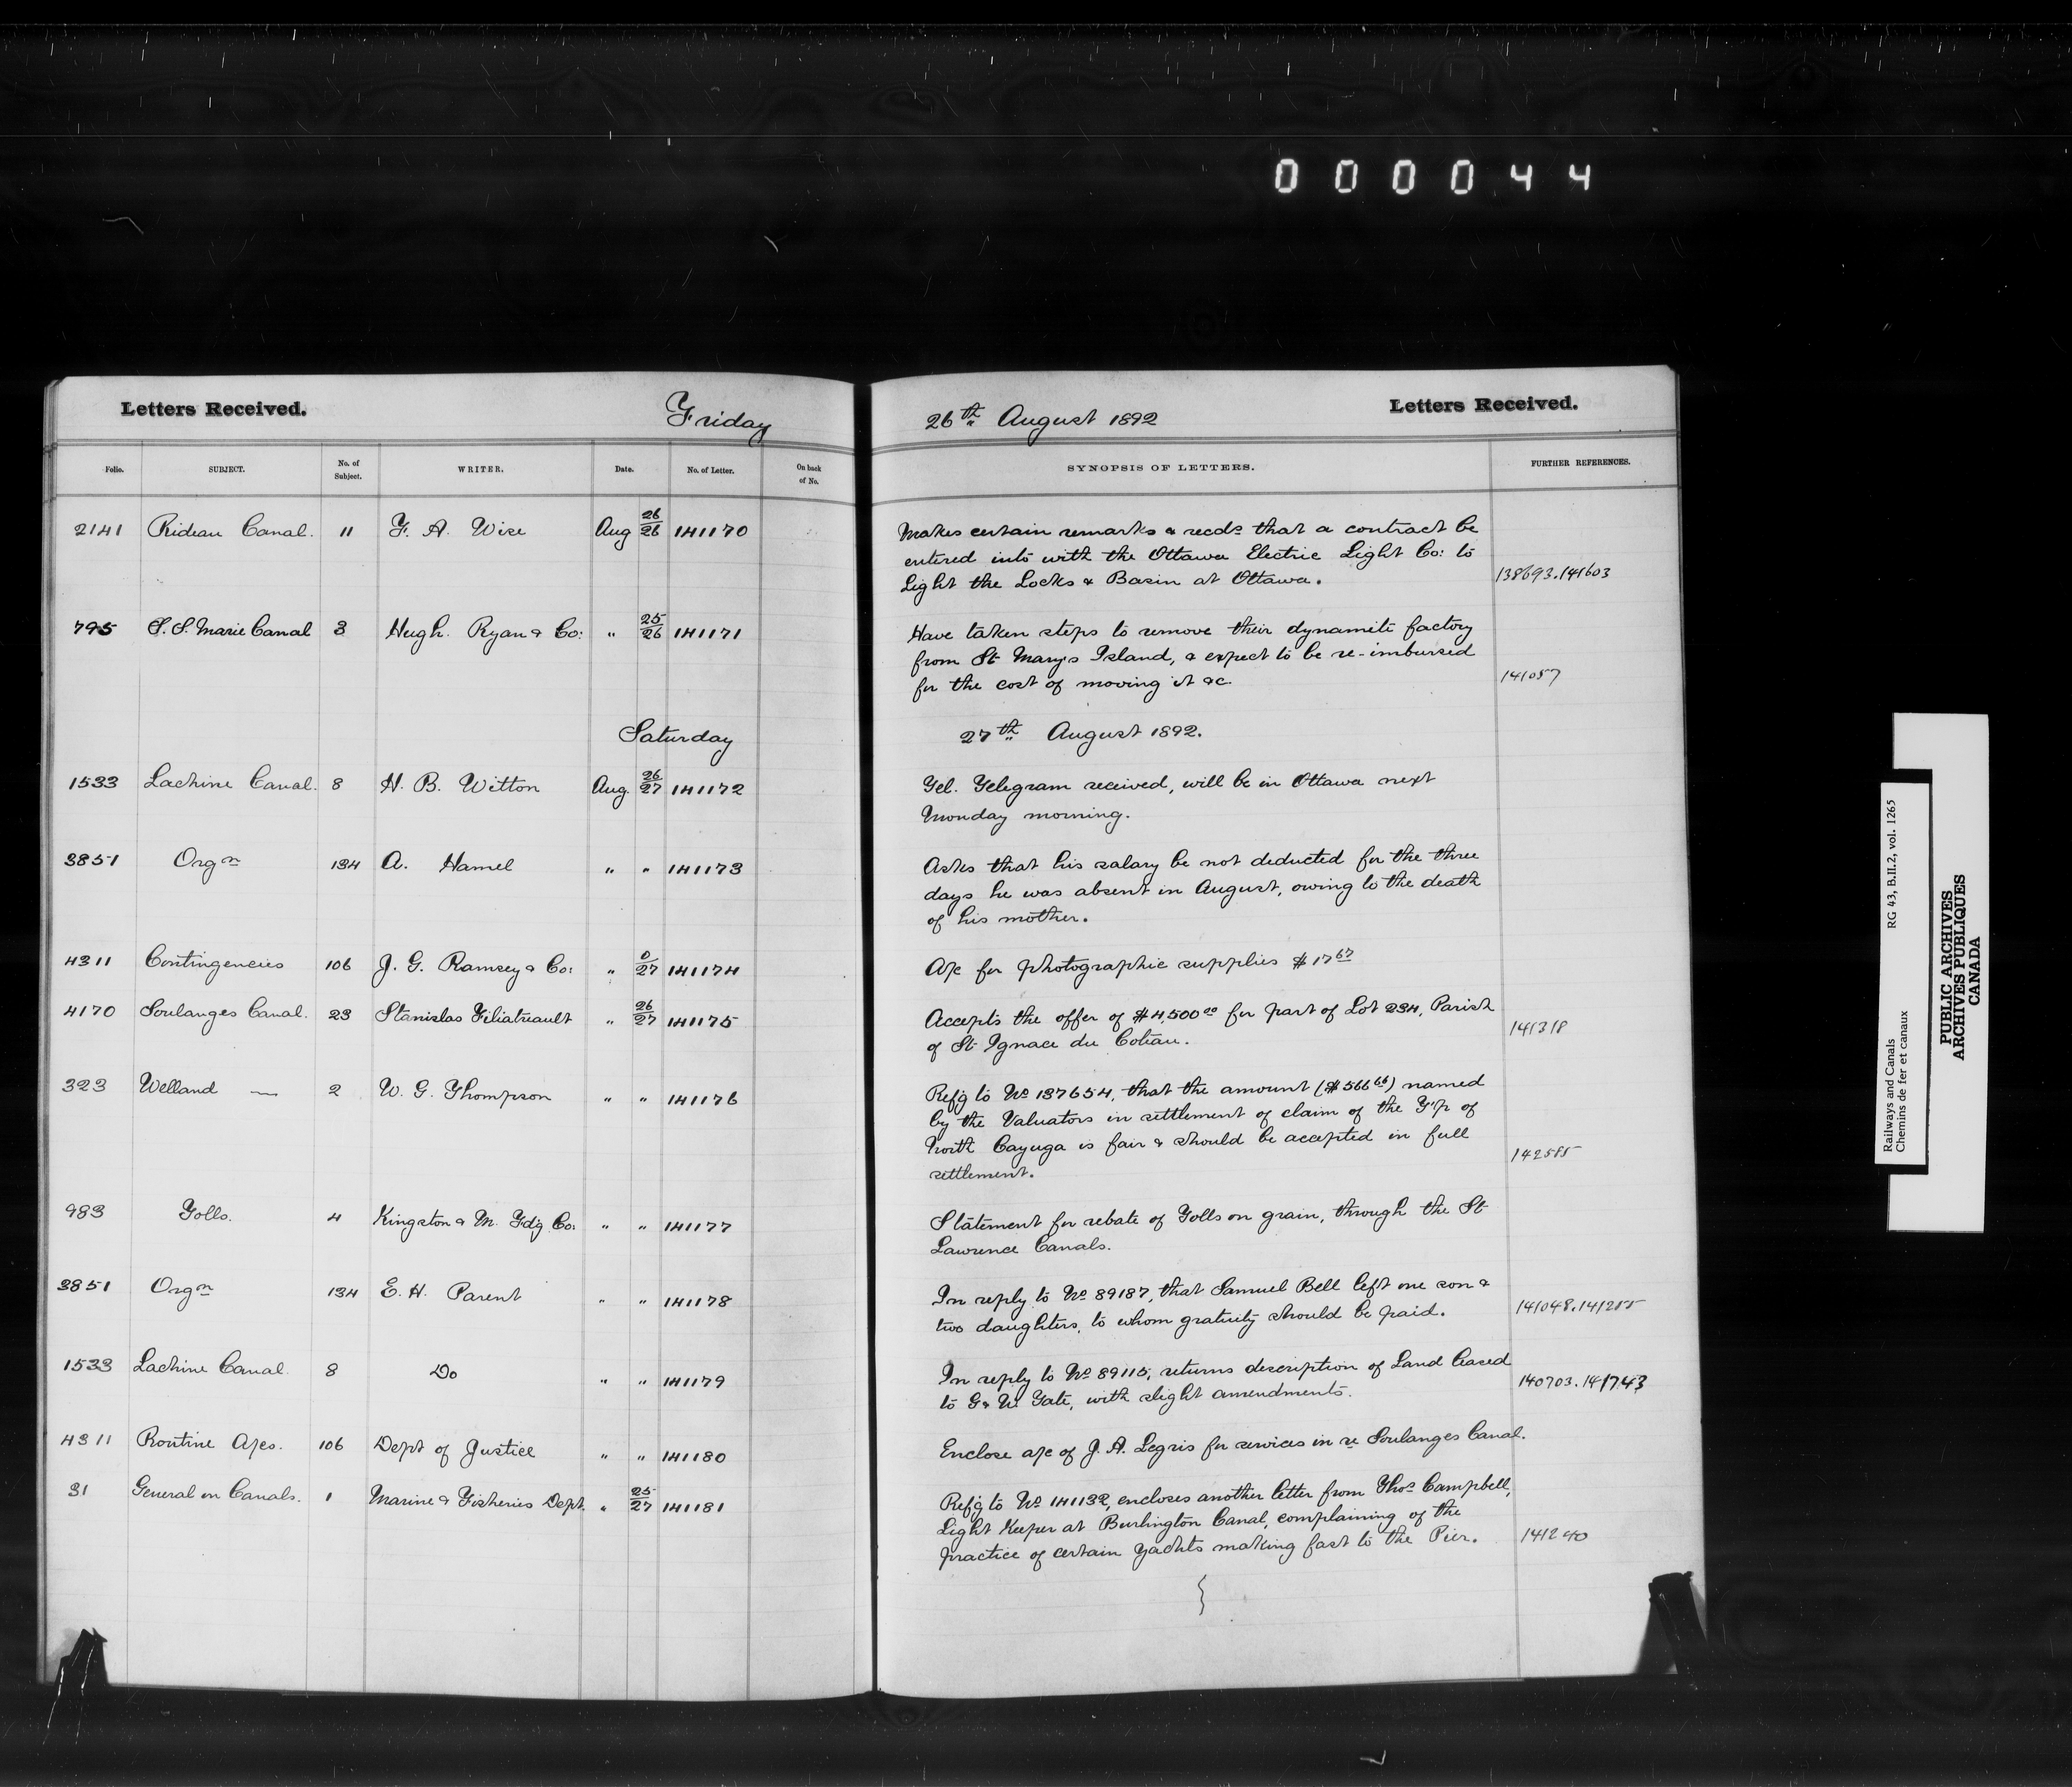 0 0 0 0 4 4
Letters Received.
Friday
26th August 1892
Letters Received.
Folio. SUBJECT. No. of Subject. WRITER. Date. No. of Letter. On back of No. SYNOPSIS OF LETTERS. FURTHER REFERENCES.
2141 Rideau Canal. 11 F. A. Wise Aug 26/26 141170 Makes certain remarks & recds that a contract be
entered into with the Ottawa Electric Light Co: to
Light the Locks & Basin at Ottawa. 138693.141603
795 S. S. Marie Canal 3 Hugh. Ryan & Co: " 25/26 141171 Have taken steps to remove their dynamite factory
from St Mary's Island, & expect to be re-imbursed
for the cost of moving it &c. 141057
Saturday 27th August 1892.
1533 Lachine Canal. 8 H. B. Witton Aug. 26/27 141172 Tel. Telegram received, will be in Ottawa next
Monday morning.
3851 Orgn 134 A. Hamel " " 141173 Asks that his salary be not deducted for the three
days he was absent in August, owing to the death
of his mother.
4311 Contingencies 106 J. G. Ramsey & Co: " 0/27 141174 A/c for photographic supplies $17 67
4170 Soulanges Canal. 23 Stanislas Filiatreault " 26/27 141175 Accepts the offer of $4,500 00 for part of Lot 234, Parish
of St Ignace du Coteau. 141318
323 Welland — 2 W. G. Thompson " " 141176 Refg to No 137654, that the amount ($566 66) named
by the Valuators in settlement of claim of the T'p of
North Cayuga is fair & should be accepted in full
settlement. 142585
983 Tolls. 4 Kingston & M. Fdg Co: " " 141177 Statement for rebate of Tolls on grain, through the St
Lawrence Canals.
3851 Orgn 134 E. H. Parent " " 141178 In reply to No 89187, that Samuel Bell left one son &
two daughters, to whom gratuity should be paid. 141048.141255
1533 Lachine Canal. 8 Do " " 141179 In reply to No 89115, returns description of Land leased
to G & W. Tate, with slight amendments. 140703.141743
4311 Routine A/cs. 106 Dept of Justice " " 141180 Enclose a/c of J. A. Legris for services in re Soulanges Canal.
31 General on Canals. 1 Marine & Fisheries Dept. " 25/27 141181 Refg to No 141132, encloses another letter from Thos Campbell,
Light Keeper at Burlington Canal, complaining of the
practice of certain yachts making fast to the Pier. 141240
Railways and Canals RG 43, B.II.2, vol. 1265
Chemins de fer et canaux
PUBLIC ARCHIVES
ARCHIVES PUBLIQUES
CANADA